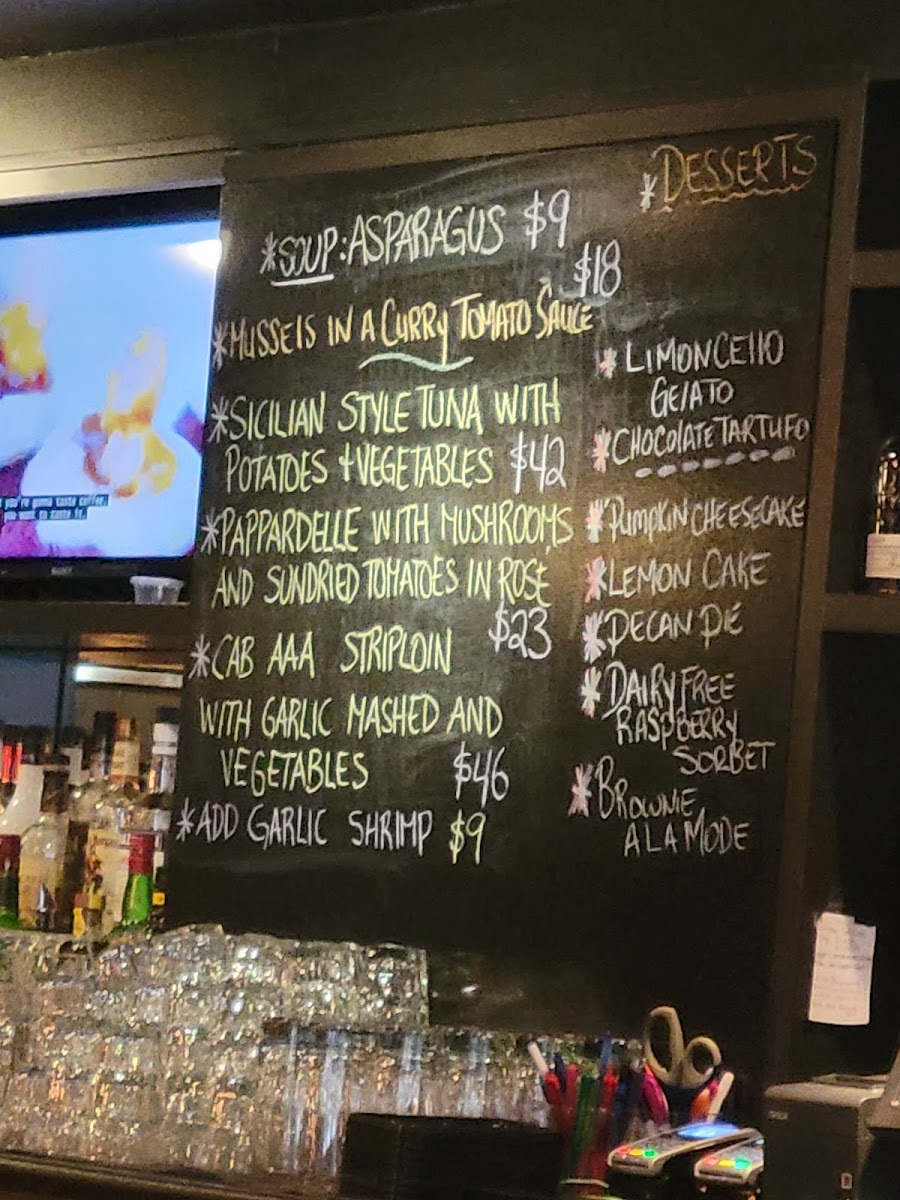 *SOUP: ASPARAGUS $9
$18
*MUSSELS IN A CURRY TOMATO SAUCE
*SICILIAN STYLE TUNA WITH
POTATOES + VEGETABLES $42
*PAPPARDELLE WITH MUSHROOMS
AND SUNDRIED TOMATOES IN ROSÉ
$23
*CAB AAA STRIPLOIN
WITH GARLIC MASHED AND
VEGETABLES $46
*ADD GARLIC SHRIMP $9
*DESSERTS
*LIMONCELLO
GELATO
*CHOCOLATE TARTUFO
*PUMPKIN CHEESECAKE
*LEMON CAKE
*PECAN PIE
*DAIRY FREE
RASPBERRY
SORBET
*BROWNIE
A LA MODE
you're gonna taste coffee,
you want to taste it.